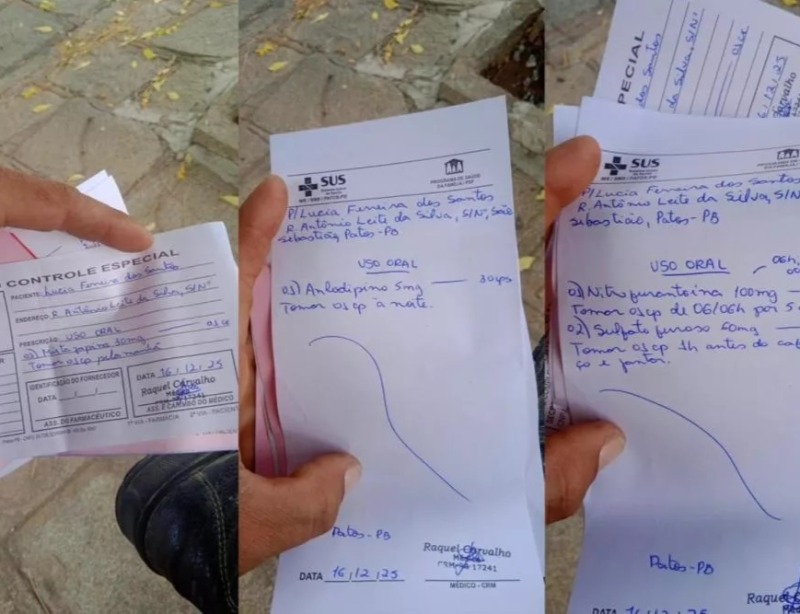 CONTROLE ESPECIAL
PACIENTE: Lucia Ferreira dos Santos
ENDEREÇO: R. Antônio Leite da Silva, S/Nº
PRESCRIÇÃO: USO ORAL
Tomar 01 cp pela manhã
IDENTIFICAÇÃO DO FORNECEDOR
DATA / /
ASS. DO FARMACÊUTICO
DATA 16, 12, 25
Raquel Carvalho
17241
ASS. E CARIMBO DO MÉDICO
1ª VIA - FARMÁCIA 2ª VIA - PACIENTE
SUS
PROGRAMA DE SAÚDE
DA FAMÍLIA / PSF
P/ Lucia Ferreira dos Santos
R. Antônio Leite da Silva, S/Nº, São
Sebastião, Patos-PB
USO ORAL
01) Anlodipino 5mg — 30cps
Tomar 01 cp à noite.
Patos-PB
DATA 16, 12, 25
Raquel Carvalho
17241
MÉDICO - CRM
PECIAL
dos Santos
da Silva, S/Nº
12, 25
SUS
P/ Lucia Ferreira dos Santos
R. Antônio Leite da Silva, S/N
Sebastião, Patos-PB
USO ORAL
01) Nitrofurantoína 100mg —
Tomar 01 cp de 06/06h por 5
02) Sulfato ferroso 40mg —
Tomar 01 cp 1h antes do
ço e jantar.
Patos-PB
DATA 16, 12, 25
Raquel